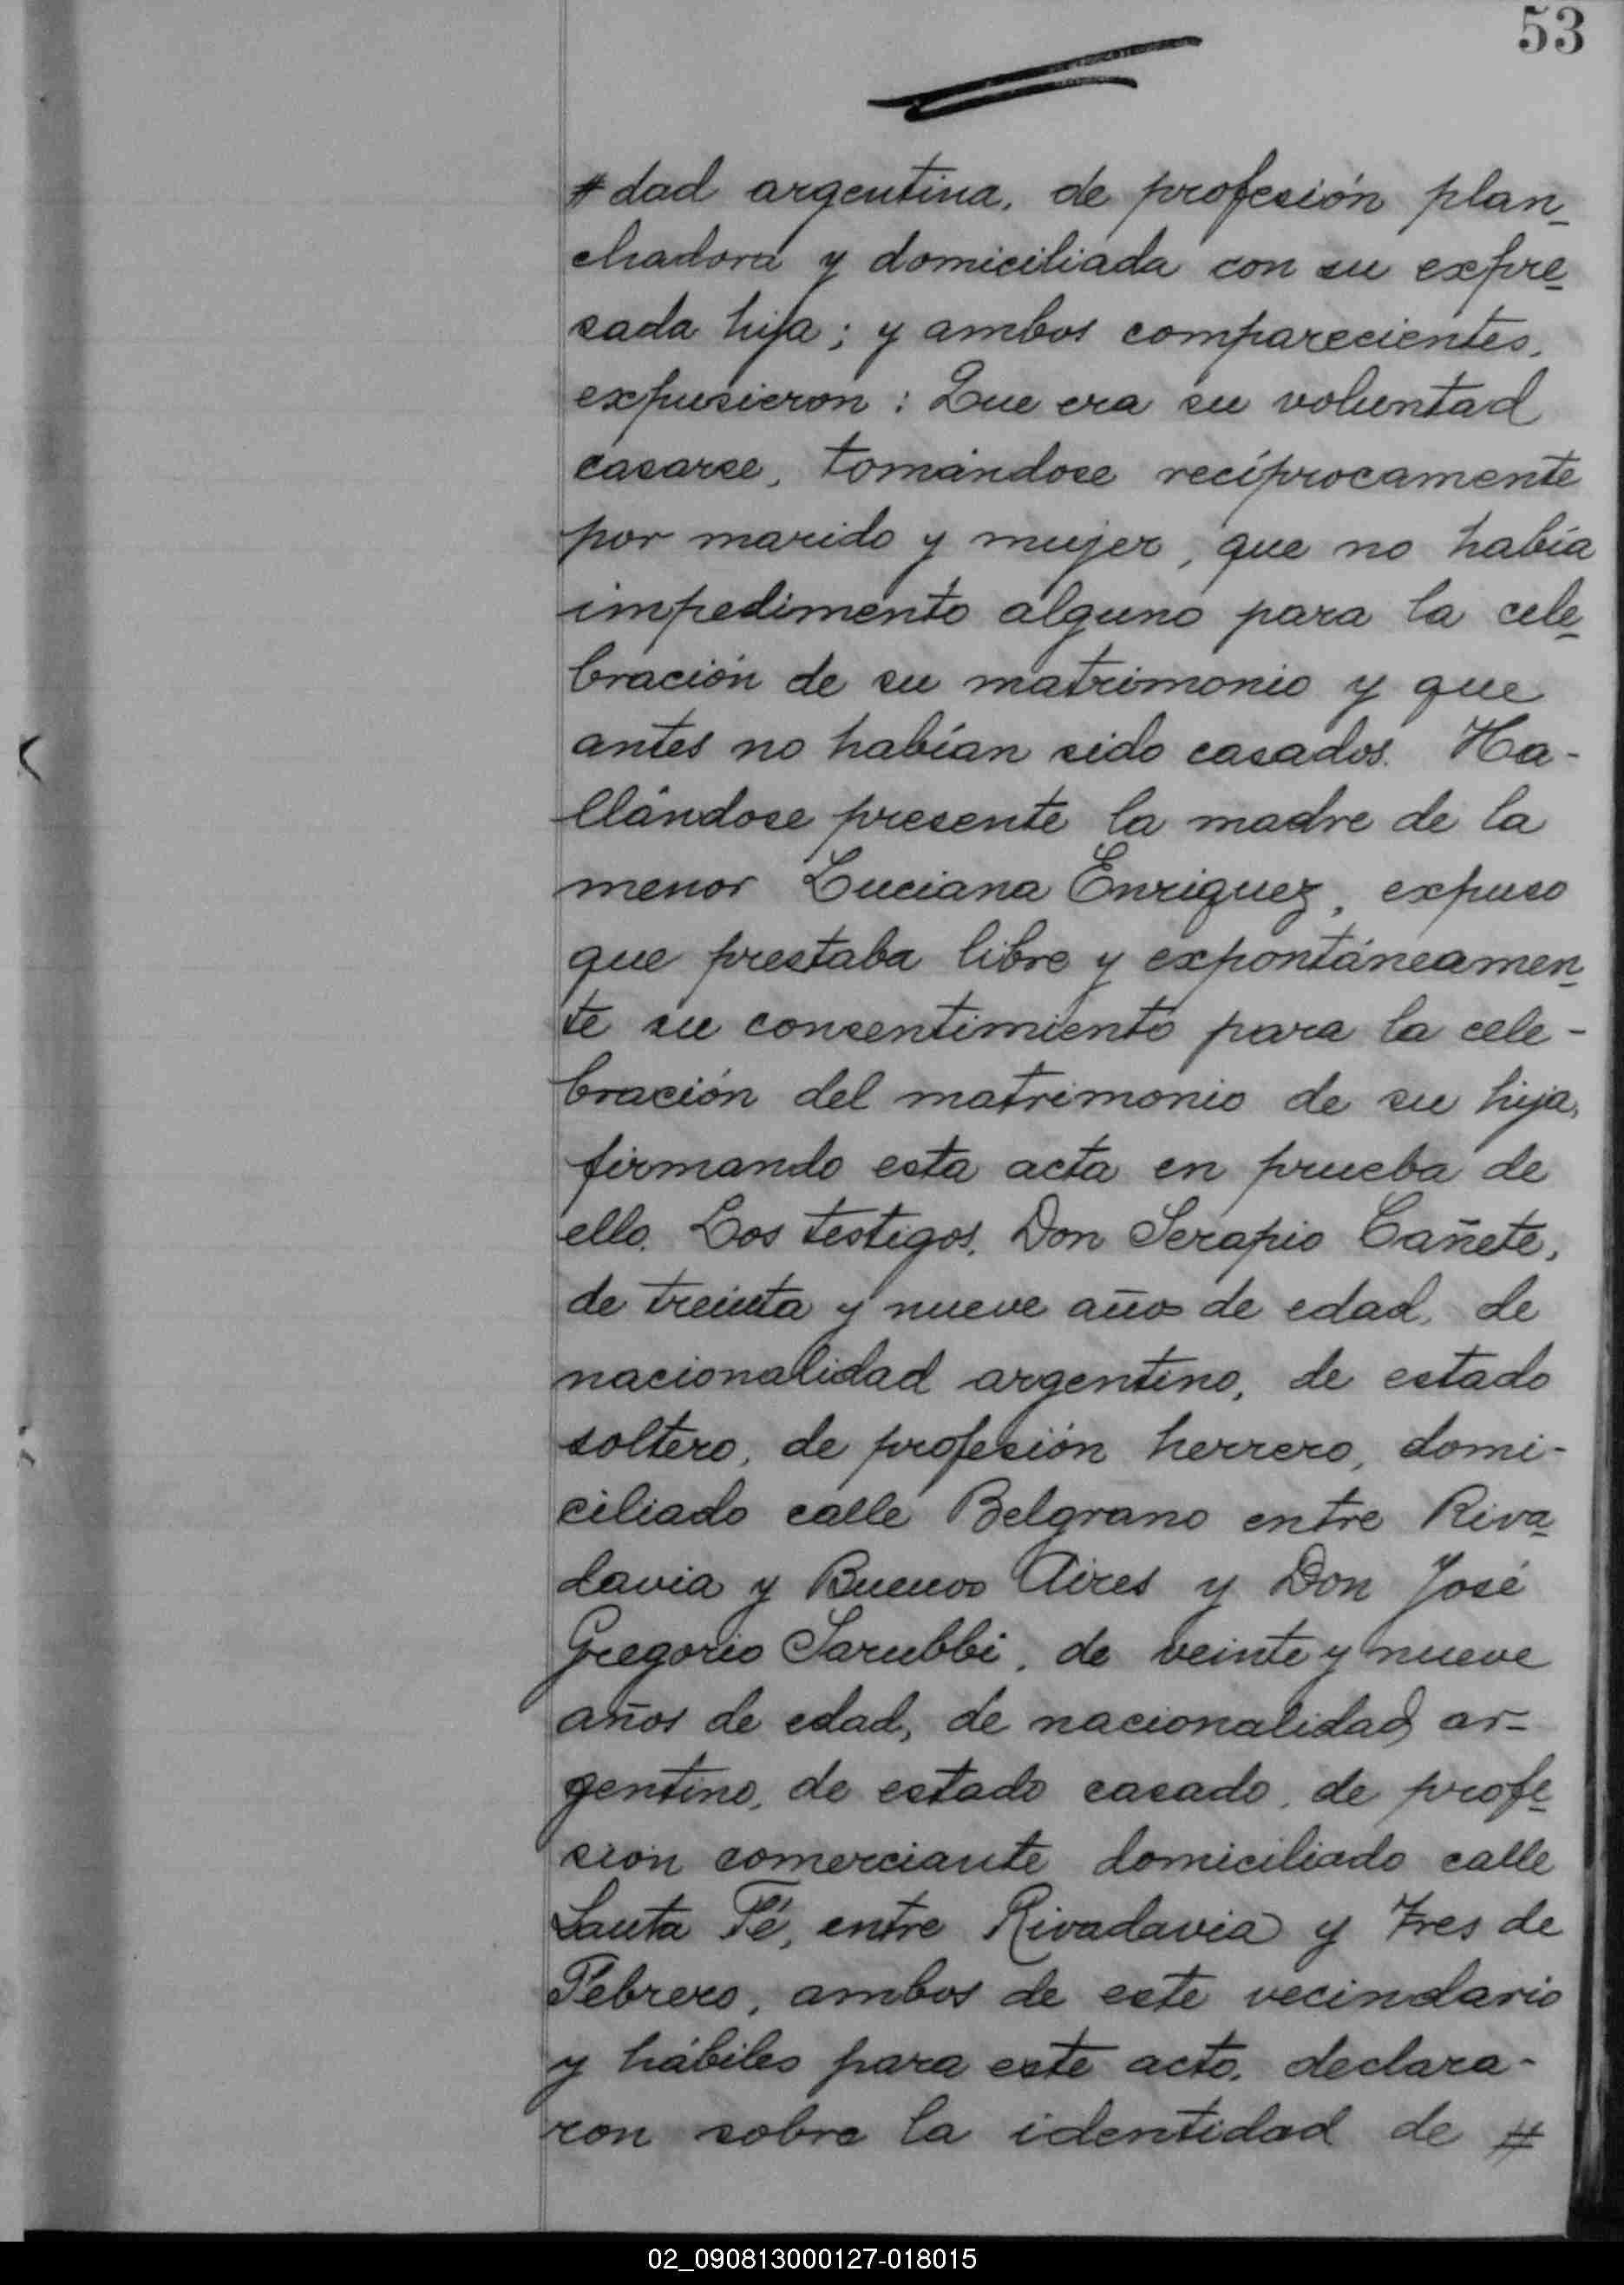 53
# dad argentina, de profesión plan-
chadora y domiciliada con su expre-
sada hija; y ambos comparecientes,
expusieron: Que era su voluntad
casarse, tomándose recíprocamente
por marido y mujer, que no había
impedimento alguno para la cele-
bración de su matrimonio y que
antes no habían sido casados. Ha-
llándose presente la madre de la
menor Luciana Enriquez, expuso
que prestaba libre y expontáneamen-
te su consentimiento para la cele-
bración del matrimonio de su hija,
firmando esta acta en prueba de
ello. Los testigos, Don Serapio Cañete,
de treinta y nueve años de edad, de
nacionalidad argentino, de estado
soltero, de profesión herrero, domi-
ciliado calle Belgrano entre Riva-
davia y Buenos Aires y Don José
Gregorio Sarubbi, de veinte y nueve
años de edad, de nacionalidad ar-
gentino, de estado casado, de profe-
sión comerciante domiciliado calle
Santa Fé, entre Rivadavia y Tres de
Febrero, ambos de este vecindario
y hábiles para este acto, declara-
ron sobre la identidad de #
02_090813000127-018015